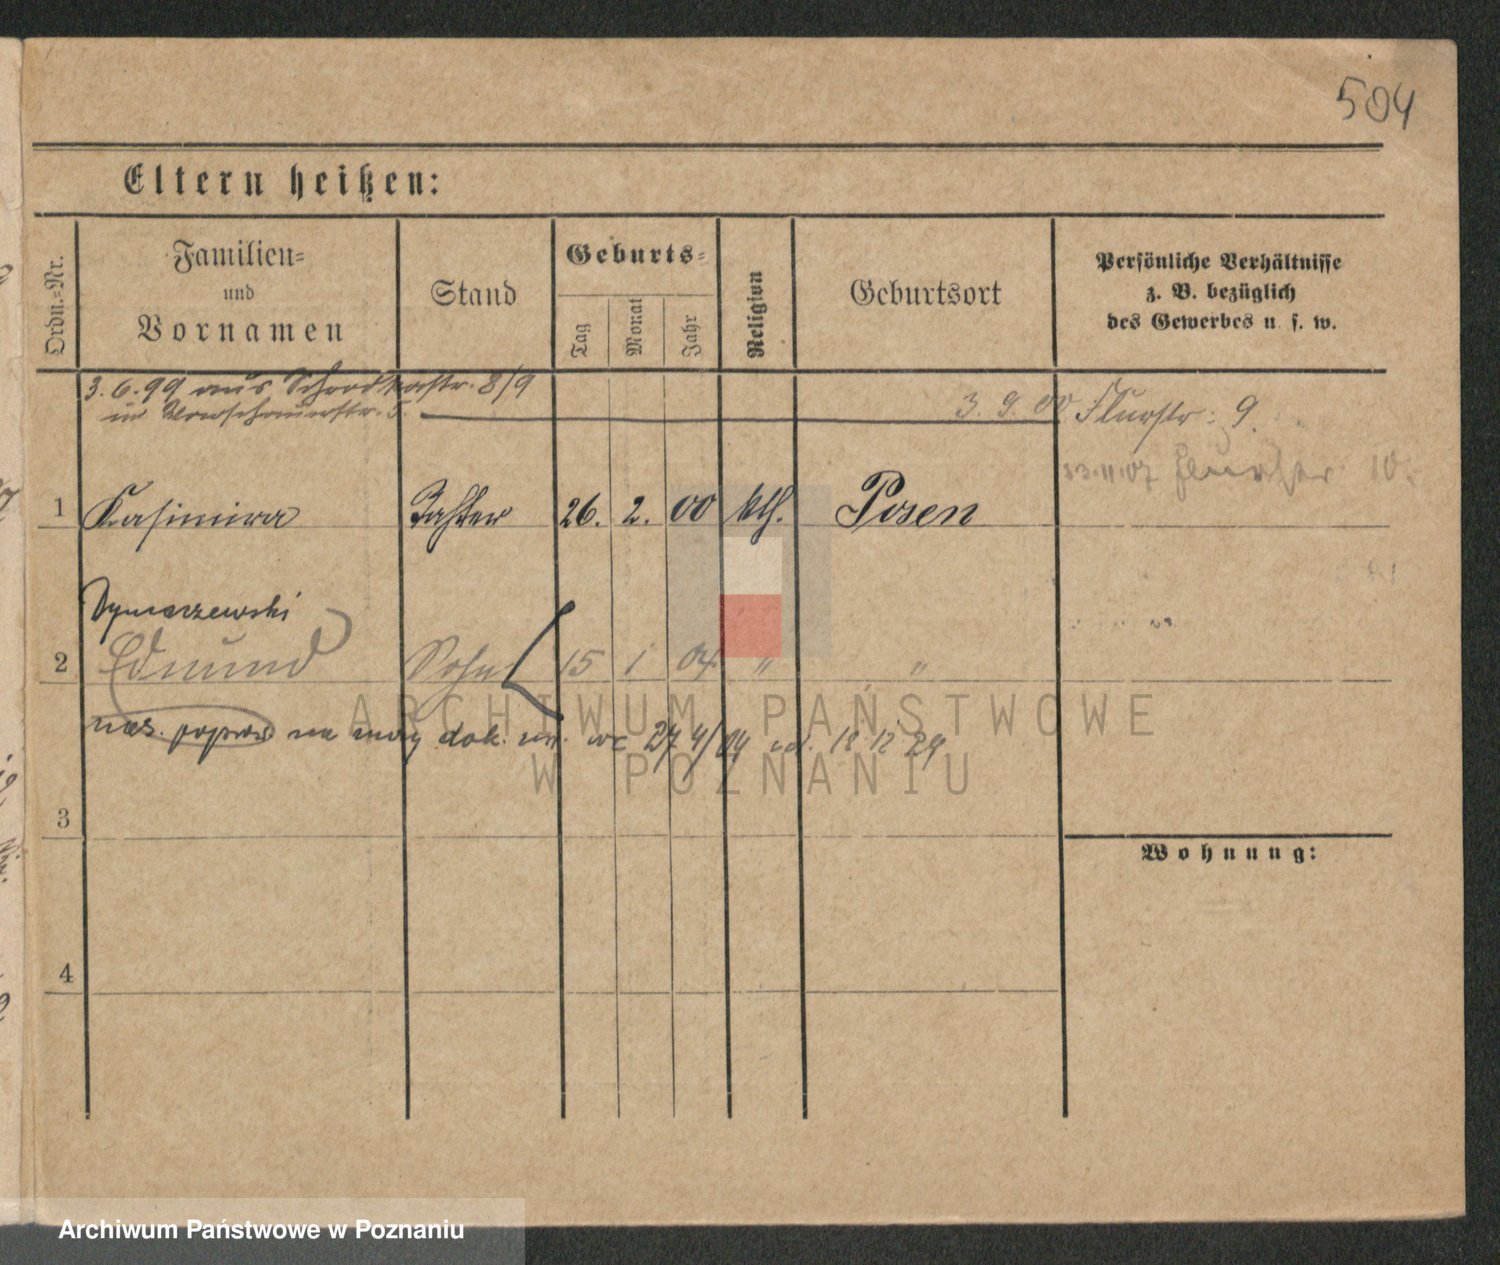 504
Eltern heißen:
Ordn.=Nr.
Familien=
und
Vornamen
Stand
Geburts=
Tag
Monat
Jahr
Religion
Geburtsort
Persönliche Verhältnisse
z. B. bezüglich
des Gewerbes u. s. w.
3. 6. 99 aus Schrodkastr. 8/9
in Warschauerstr. 5. 3. 9. 00 Flurstr: 9.
23.11.07 10.
1 Kasimira Tochter 26. 2. 00 kth. Posen
Dymaczewski
2 Edmund Sohn 15 1 04 " "
naz. popraw na mocy dok. ur. 27 4/04 12 12 29
3
Wohnung:
4
ARCHIWUM PAŃSTWOWE
W POZNANIU
Archiwum Państwowe w Poznaniu